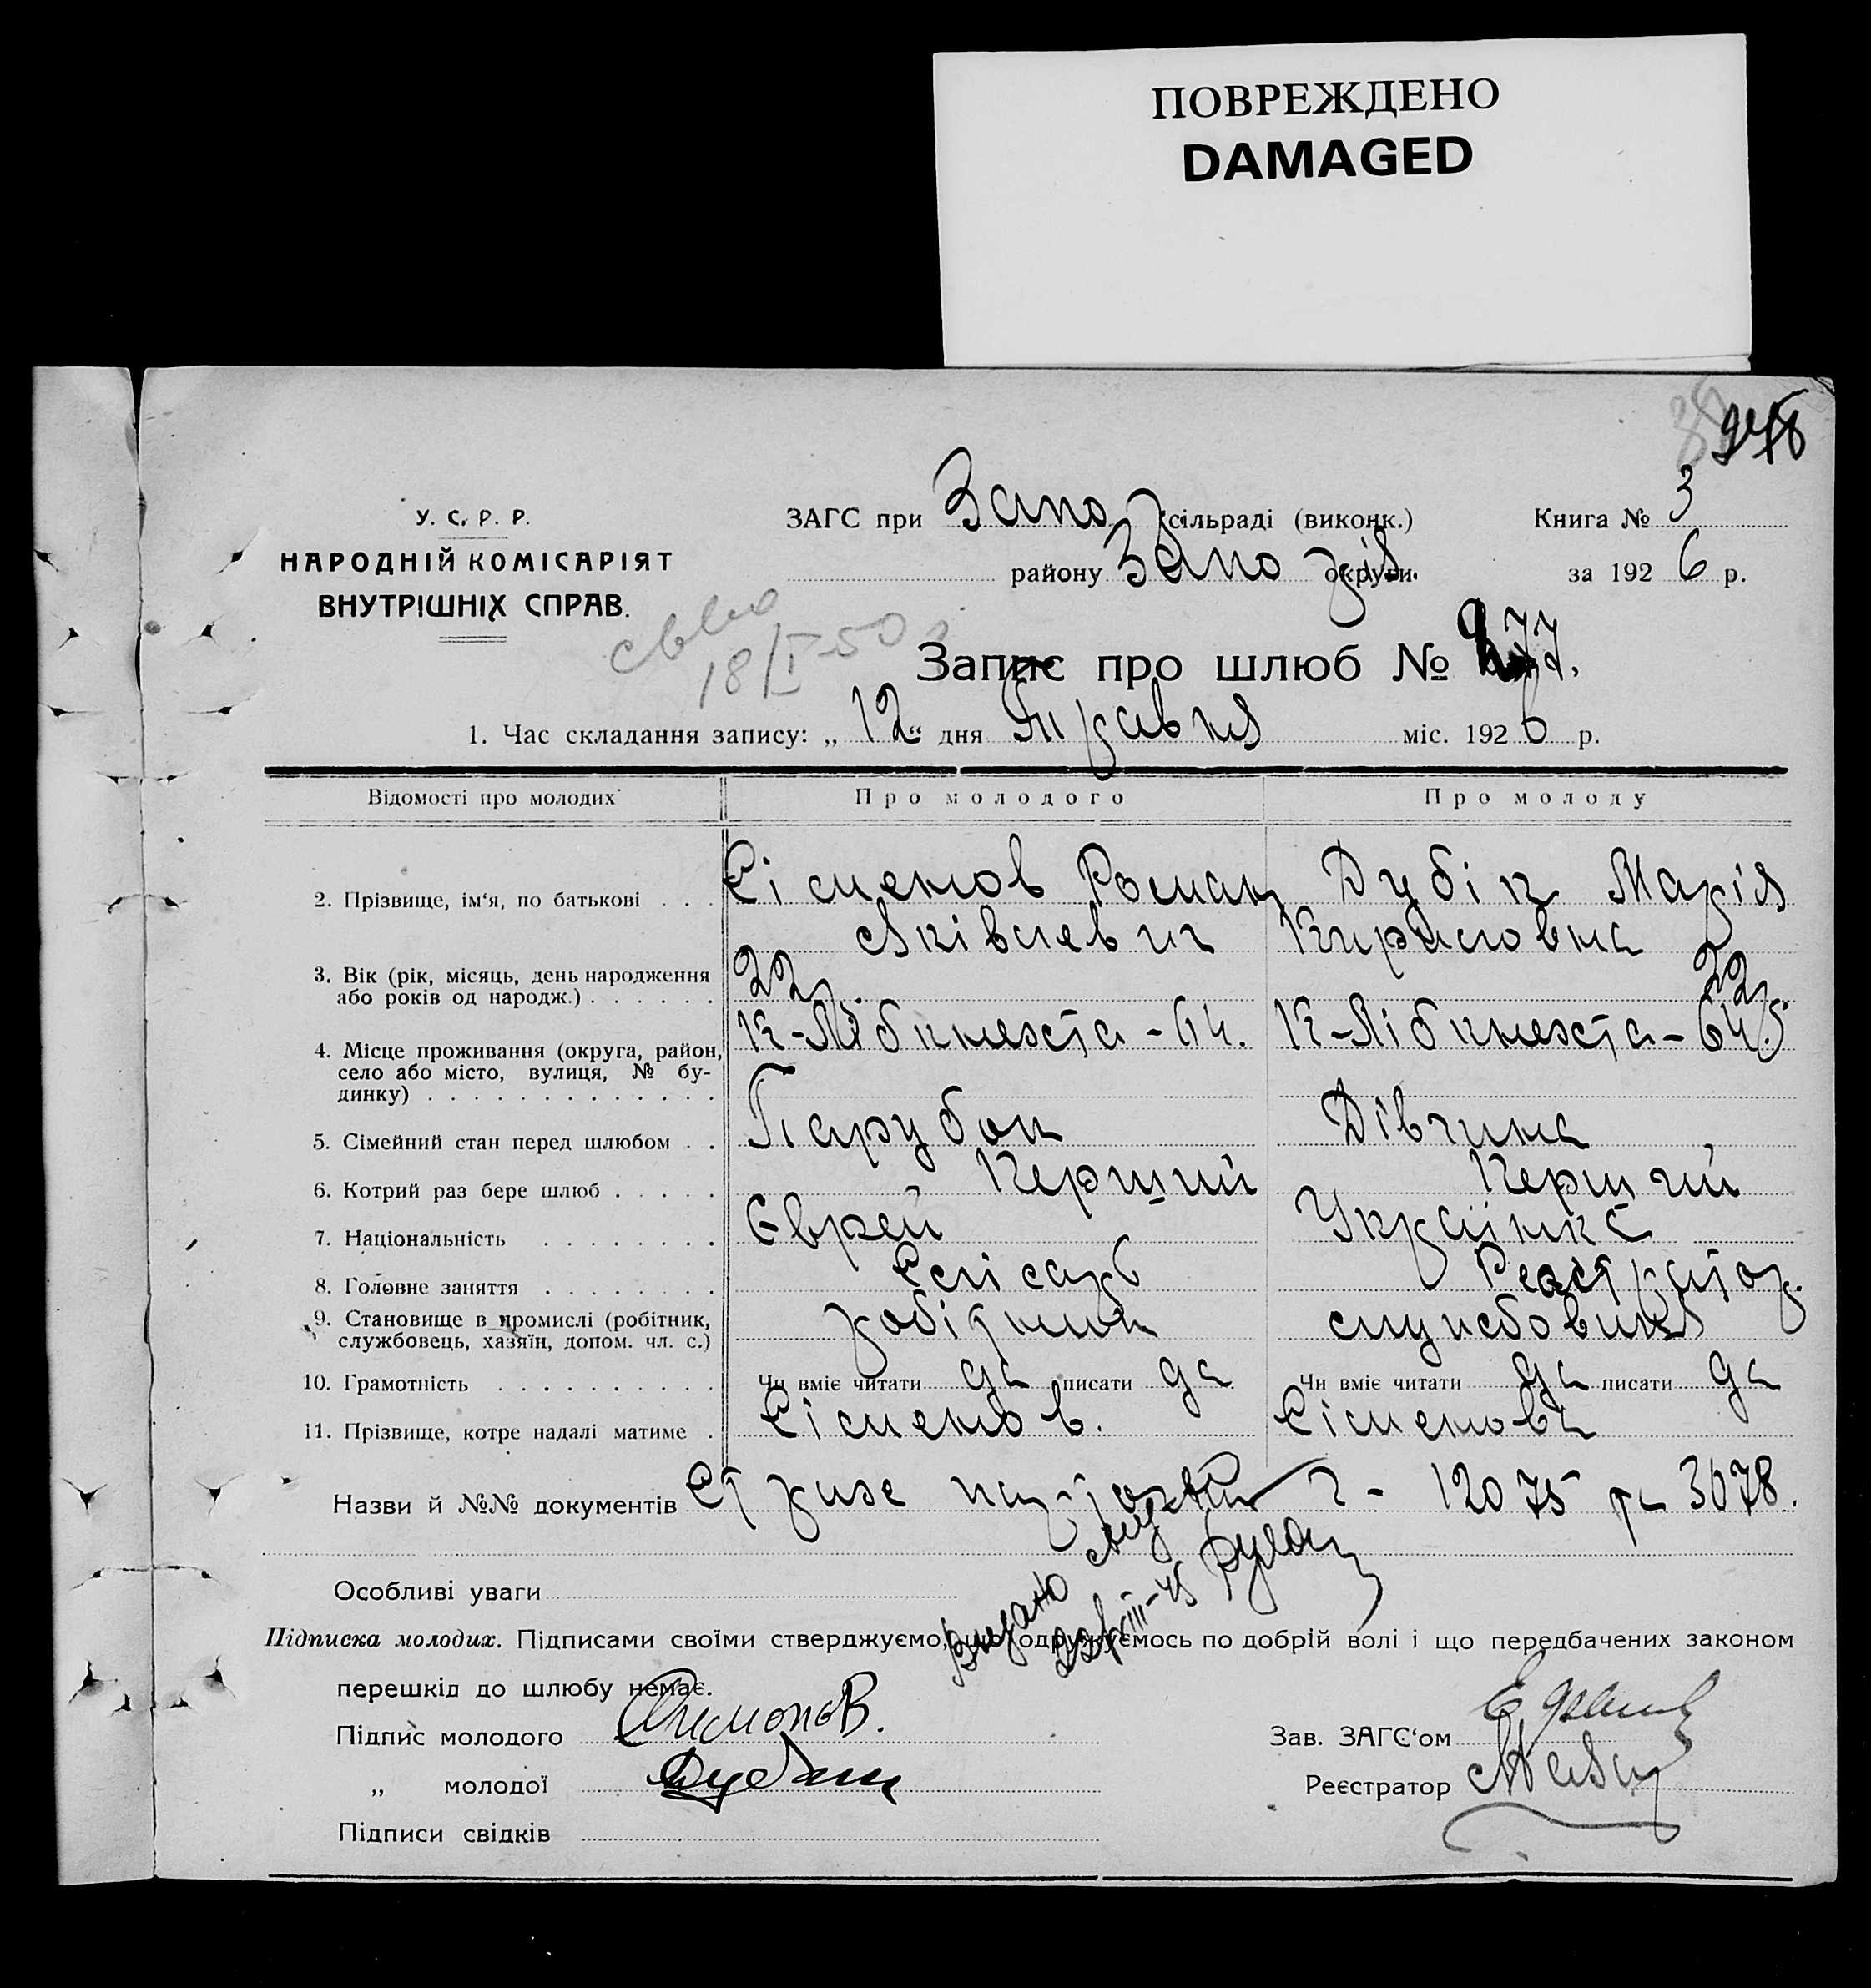 ПОВРЕЖДЕНО
DAMAGED
У. С. Р. Р.
НАРОДНІЙ КОМІСАРІЯТ
ВНУТРІШНІХ СПРАВ.
ЗАГС при Запо сільраді (виконк.) Книга № 3
району Запо округи. за 1926 р.
18/I-50
Запис про шлюб № 277.
1. Час складання запису: „ 12 “ дня Травня міс. 1926 р.
Відомості про молодих Про молодого Про молоду
2. Прізвище, ім‘я, по батькові . . . Сісменов Роман Дубік Марія
Яківлевич Кириловна
3. Вік (рік, місяць, день народження 22 р. 22 р.
або років од народж.) . . . . . .
4. Місце проживання (округа, район, К-Лібкнехта - 64. К-Лібкнехта - 64.
село або місто, вулиця, № бу-
динку) . . . . . . . . . . . . .
5. Сімейний стан перед шлюбом . . Парубок Дівчина
6. Котрий раз бере шлюб . . . . . Перший Перший
7. Національність . . . . . . . . Єврей Українка
8. Головне заняття . . . . . . . . Слісарь Реєстратор.
9. Становище в промислі (робітник, робітник службовиця
службовець, хазяїн, допом. чл. с.)
10. Грамотність . . . . . . . . . . Чи вміє читати да писати да Чи вміє читати да писати да
11. Прізвище, котре надалі матиме . Сісменов. Сісменова
Назви й №№ документів 12075 та 3678.
Особливі уваги
Підписка молодих. Підписами своїми стверджуємо, що одружуємось по добрій волі і що передбачених законом
перешкід до шлюбу немає.
Підпис молодого
Зав. ЗАГС‘ом
„ молодої
Реєстратор
Підписи свідків